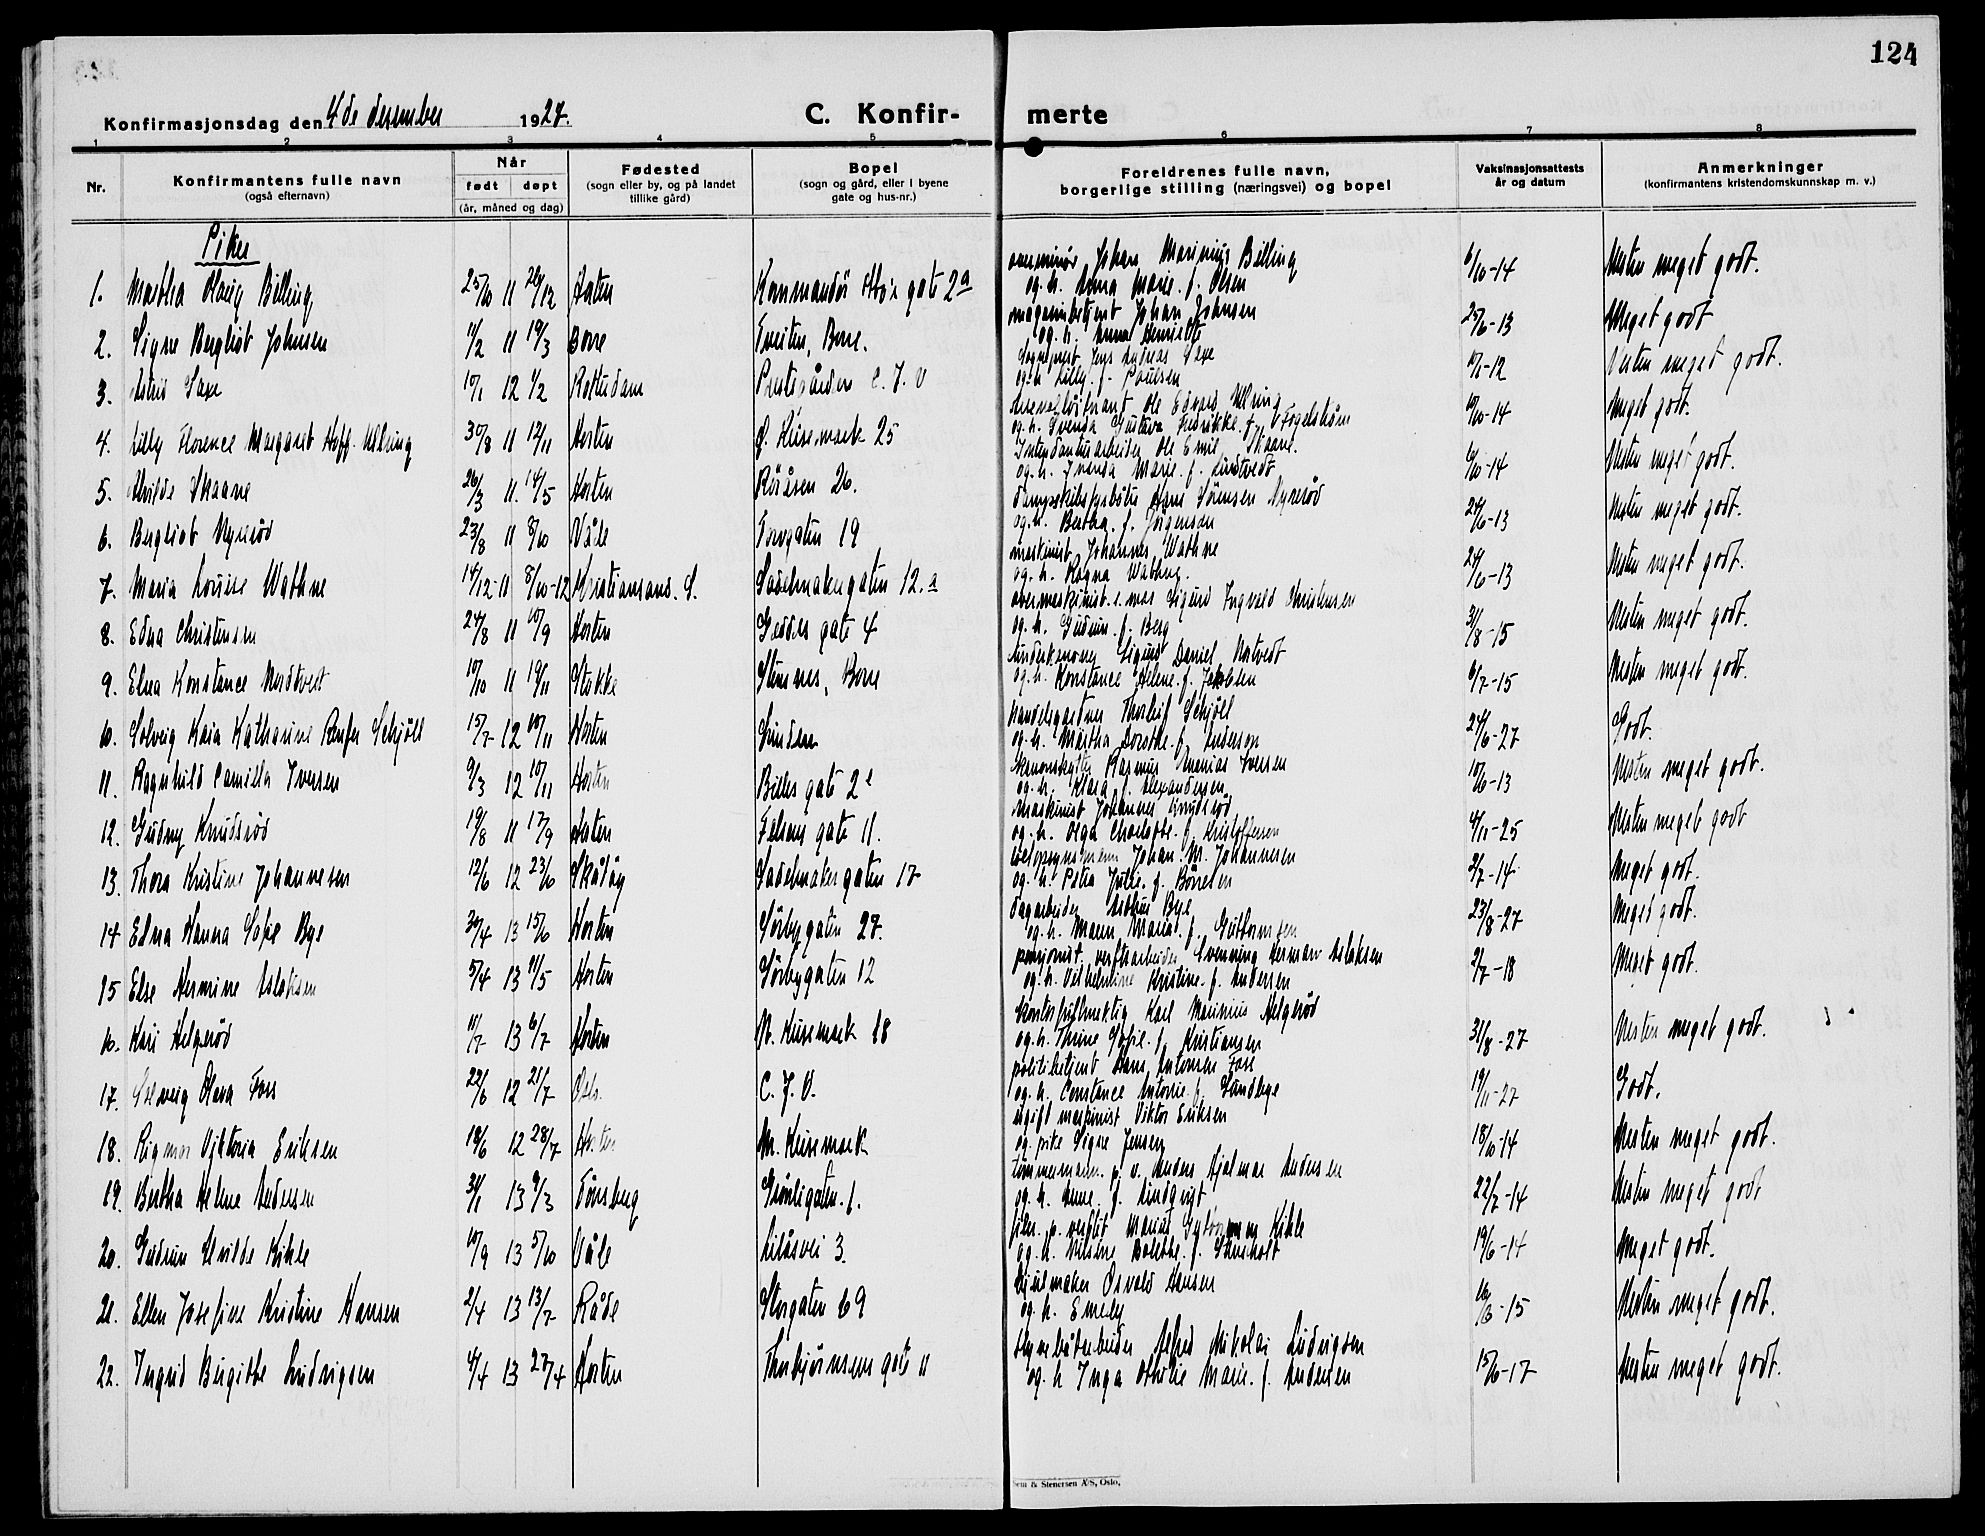 124
Konfirmasjonsdag den 4de desember 1927.
C. Konfir- merte
1 2 3 4 5 6 7 8
Nr.
Konfirmantens fulle navn
(også efternavn)
Når
født døpt
(år, måned og dag)
Fødested
(sogn eller by, og på landet
tillike gård)
Bopel
(sogn og gård, eller i byene
gate og hus-nr.)
Foreldrenes fulle navn,
borgerlige stilling (næringsvei) og bopel
Vaksinasjonsattests
år og datum
Anmerkninger
(konfirmantens kristendomskunnskap m. v.)
Piker
overminør Johan Marinius Billing
1. Martha Olaug Billing 25/10 11 26/12 Horten Kommandör gate 2a og h. Anna Marie f. Olsen 6/10-14 Nesten meget godt.
magasinbetjent Johan Johnsen
2. Signe Bergliot Johnsen 11/2 11 19/3 Borre Tveiten, Borre. og h. Anna Henriette 25/6-13 Meget godt
Sogneprest Jens Andreas Saxe
3. Astrid Saxe 10/1 12 1/2 Rotterdam Prestegården C. J. V og h. Lilly f. Paulsen 12 Nesten meget godt.
Ole Edvard Ulsing
4. Lilly Florence Margaret Hoff-Ulsing 30/8 11 12/11 Horten Ø. Keisemark 25 og h. Svenda Gustava Fredrikke f. Fogelström 10/10-14 Meget godt.
Intendanturarbeider Ole Emil Skaane.
5. Alvilde Skaane 26/3 11 14/5 Horten Röråsen 26. og h. Marie f. 6/10-14 Nesten meget godt.
dampskibsfyrböter Hans Sörensen Nyresöd
6. Bergliot Nyresöd 23/8 11 8/10 Våle Torvgaten 19 og h. Bertha f. Jörgensen 24/6-13 Nesten meget godt.
maskinist Johannes Wathne
7. Maria Louise Wathne 14/12-11 8/10-12 Kristiansand. S. Sadelmakergaten 12.a og h. Ragna Wathne. 24/6-13 Nesten meget godt.
overmaskinist i mar Sigurd Ingvald Christensen
8. Edna Christensen 24/8 11 10/9 Horten Geddes gate 4 og h. Gudrun f. Berg 31/8-15 Nesten meget godt.
Underkanoner Sigurd Daniel Nortvedt
9. Elna Konstance Nordtvedt 10/10 11 19/11 Stokke Steinsnes, Borre og h. Konstance Helene f. Jakobsen 6/7-15 Nesten meget godt.
handelsgartner Thorleif Schjöll
10. Solveig Kaia Katharine Schjöll 15/7 12 10/11 Horten Linden og h. Martha Dorothe f. Anderson 24/6-27 Godt.
Kanonskytter Rasmus Ananias Iversen
11. Ragnhild Camilla Iversen 9/3 12 10/11 Horten Billes gate 2 og h. Klara f. Alexandersen 10/6-13 Nesten meget godt.
Maskinist Johannes Knudsröd
12. Gudny Knudsröd 19/8 11 17/9 Horten Falsens gate 11. og h. Olga Charlotte f. Kristoffersen 4/11-25 Nesten meget godt
Johan M. Johannesen
13. Thora Kristine Johannesen 12/6 12 23/6 Skåtöy Sadelmakergaten 17 og h. Petra Jutte f. Börresen 2/7-14 Meget godt.
dagarbeider Arthur Bye
14 Edna Hanna Sofie Bye 20/4 13 15/6 Horten Sörbygaten 27. og h. Maren Maria f. Guttormsen 23/8-27 Meget godt.
pensjonist verftsarbeider Svenning Herman Aslaksen
15 Else Hermine Aslaksen 5/4 13 11/5 Horten Sörbygaten 12 og h. Vilhelmine Kristine f. Andersen 2/7-18 Meget godt.
Kontorfullmektig Karl Marinius Helgeröd
16. Kari Helgeröd 11/7 13 6/7 Horten N. Keisemark 18 og h. Thrine Sofie f. Kristiansen 31/8-27 Nesten meget godt.
politibetjent Hans Antonsen Foss
17. Solveig Olava Foss 22/6 12 21/7 Oslo. C. J. V. og h. Constance Antonie f. Sandberg 19/11-27 Godt.
ugift maskinist Viktor Eriksen
18. Rigmor Viktoria Eriksen 18/6 12 28/7 Horten N. Keisemark og pike Signe Jensen 18/10-14 Nesten meget godt.
tömmermann p. v. Anders Hjalmar Andersen
19. Bertha Helene Andersen 31/1 13 9/3 Tönsberg Grönligaten 1. og h. Anne f. Lindqvist 22/7-14 Nesten meget godt
Marius Kihle
20. Gudrun Alvilde Kihle 10/9 13 5/10 Våle Liliåsvei 3. og h. Nilsine Bolette f. 19/6-14 Meget godt.
Hjulmaker Osvald Hansen
21. Ellen Josefine Kristine Hansen 2/4 13 13/7 Råde Storgaten 69 og h. Emely 15 Nesten meget godt.
Alfred Nikolai Ludvigsen
22. Ingrid Birgitte Ludvigsen 4/4 13 27/4 Horten Thorbjörnsens gate 11 og h Inga Othilie Marie f. Andersen 15/6-17 Nesten meget godt.
Sem & Stenersen A/S, Oslo.